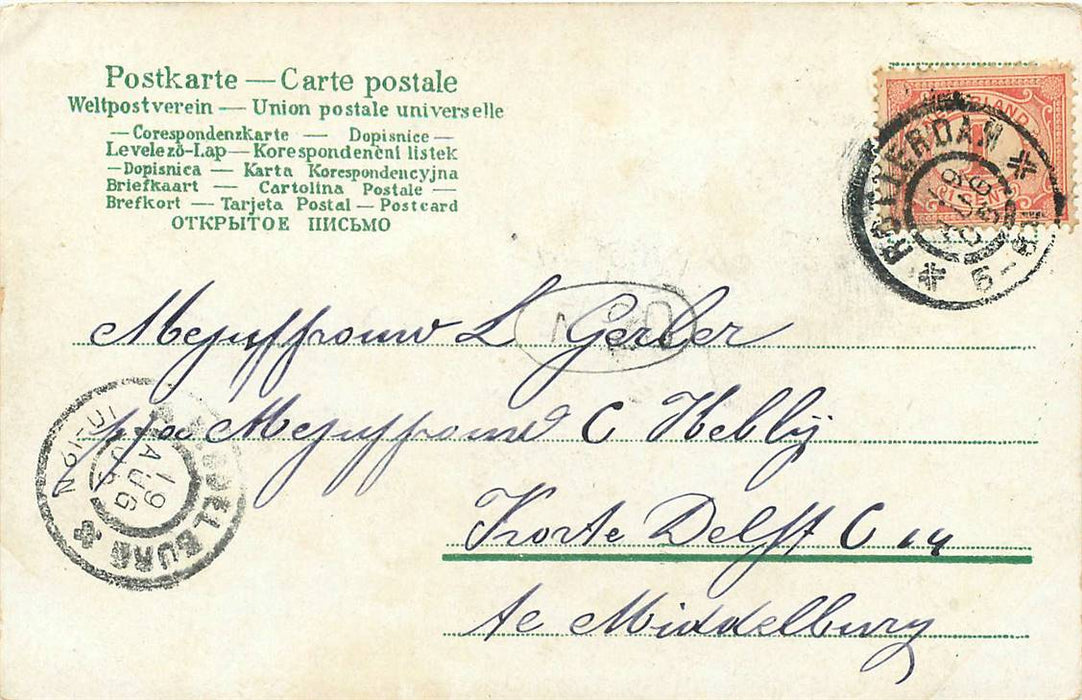 Postkarte — Carte postale
Weltpostverein — Union postale universelle
— Corespondenzkarte — Dopisnice —
Levelező-Lap — Korespondenčni listek
— Dopisnica — Karta Korespondencyjna
Briefkaart — Cartolina Postale —
Brefkort — Tarjeta Postal — Postcard
ОТКРЫТОЕ ПИСЬМО
ROTTERDAM
19 AUG
CENT
Mejuffrouw L Gerler
p/a Mejuffrouw C Heblij
Korte Delft C 14
te Middelburg
MIDDELBURG
19 AUG
10-12N